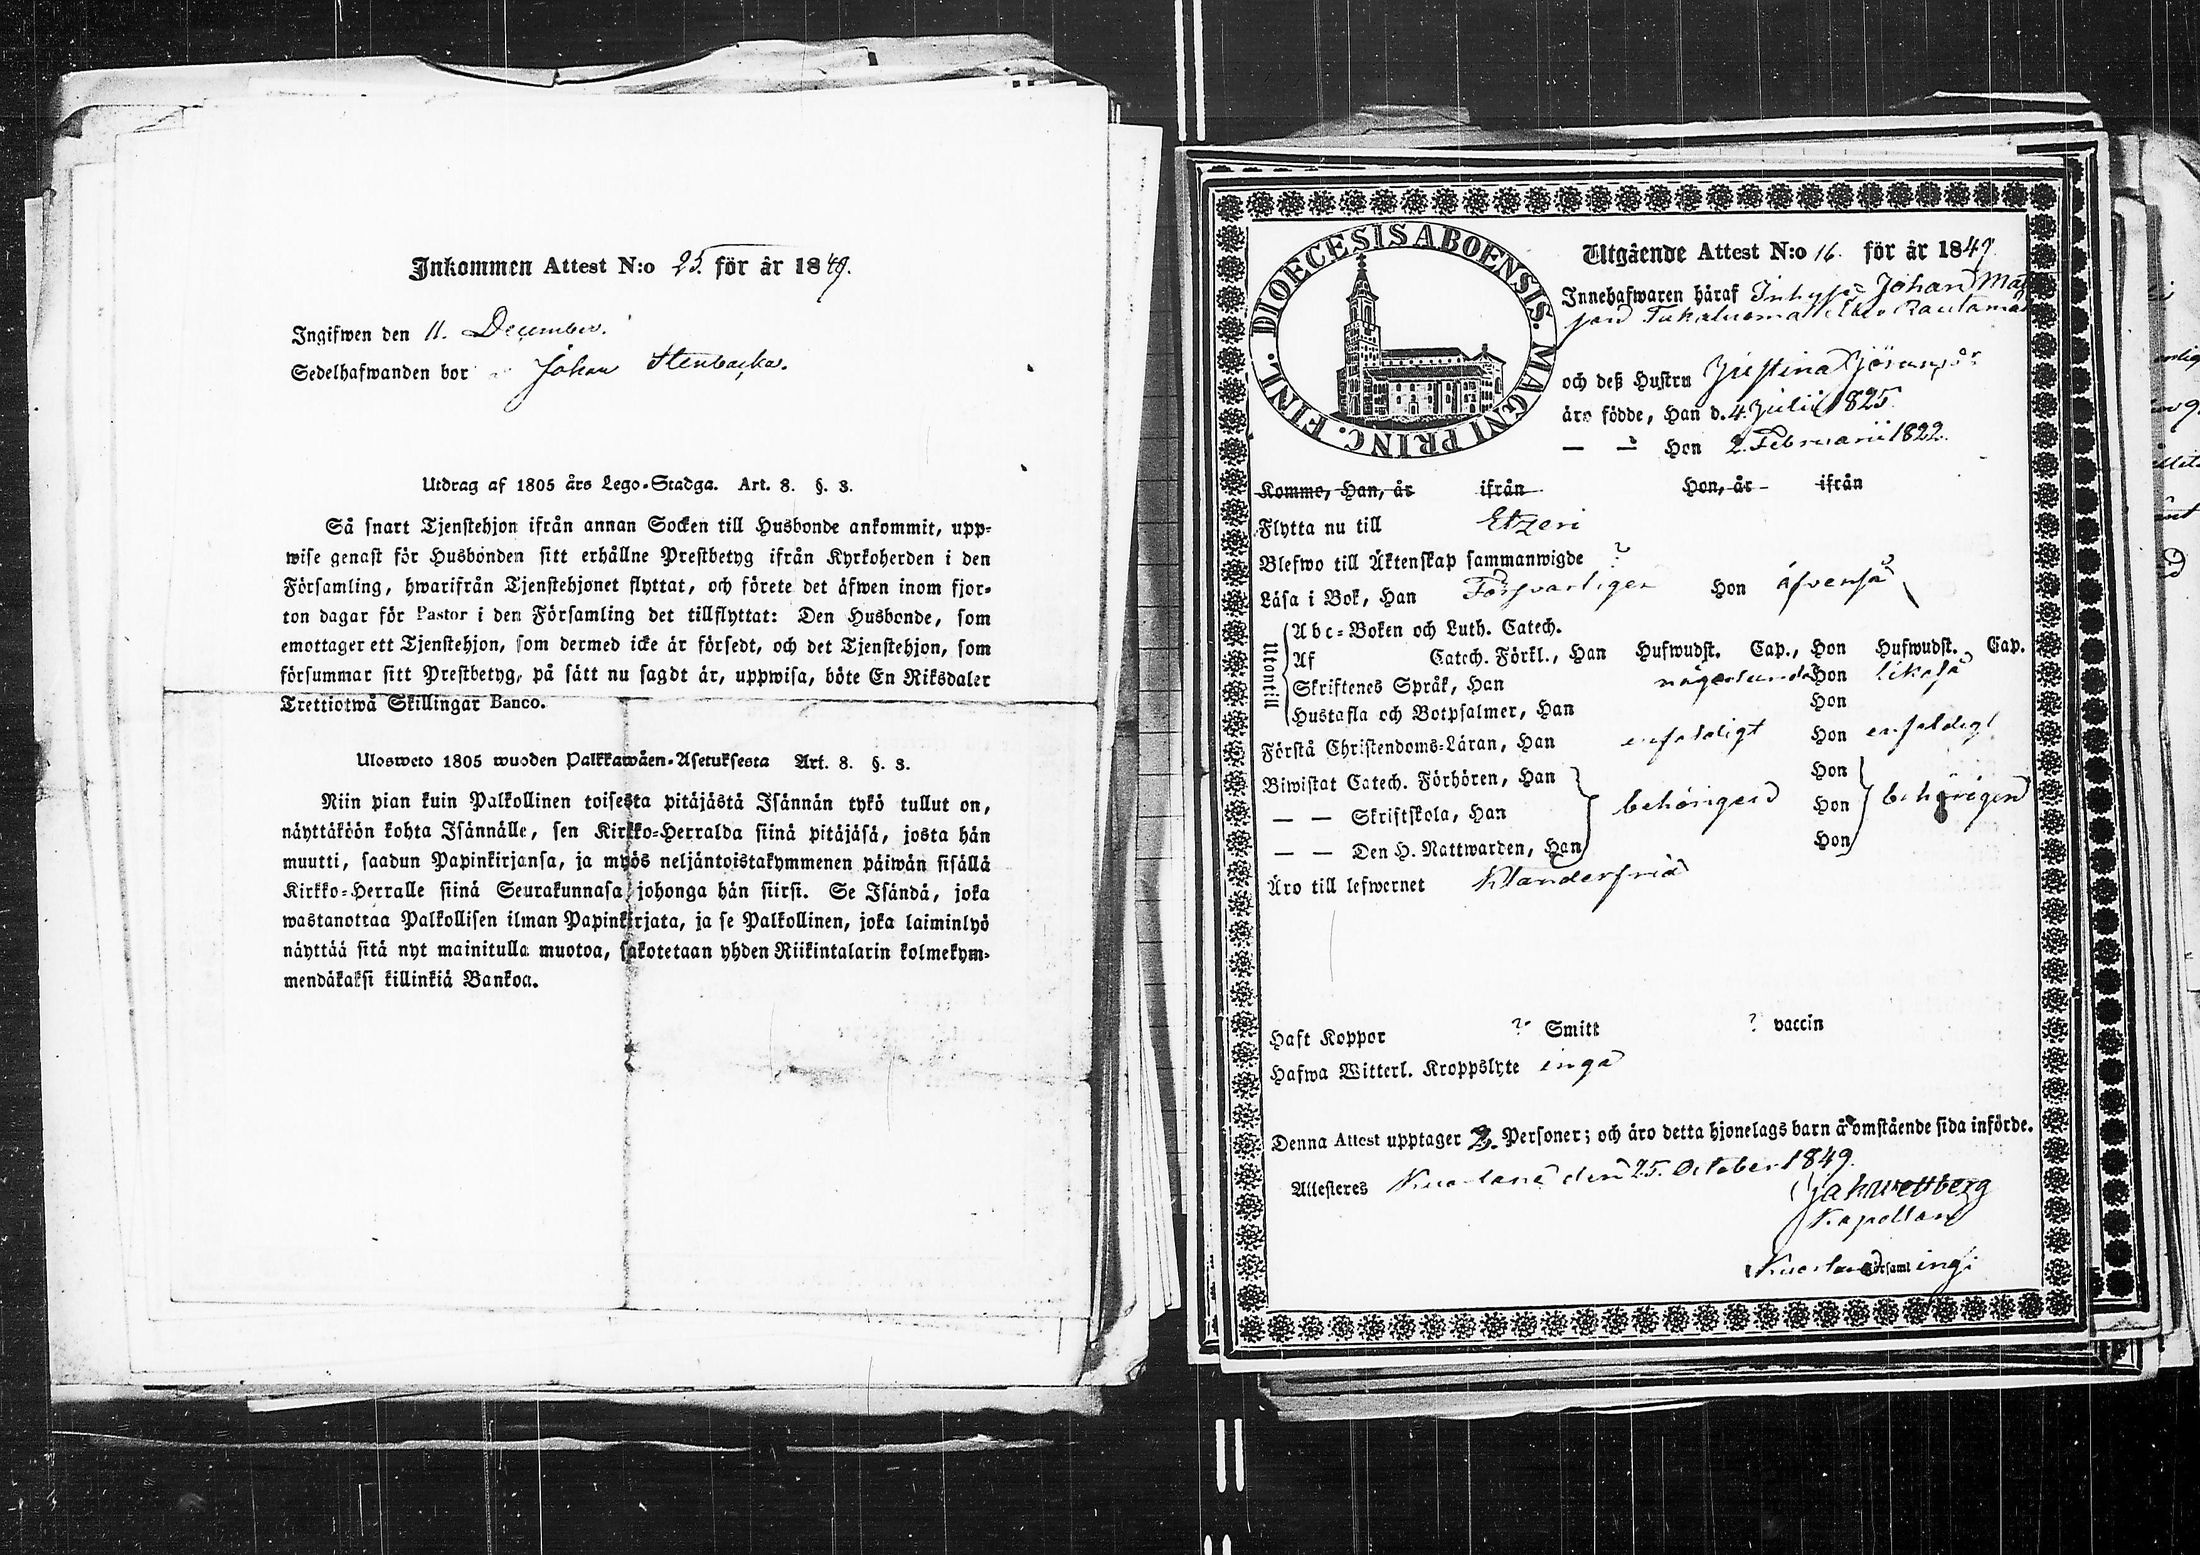 Inkommen Attest N:o 25. för år 1849.
Ingifwen den 11. December.
Sedelhafwanden bor Johan Stenbacka.
Utdrag af 1805 års Lego-Stadga. Art. 8. §. 3.
Så snart Tjenstehjon ifrån annan Socken till Husbonde ankommit, upp-
wise genast för Husbonden sitt erhållne Prestbetyg ifrån Kyrkoherden i den
Församling, hwarifrån Tjenstehjonet flyttat, och förete det äfwen inom fjor-
ton dagar för Pastor i den Församling det tillflyttat: Den Husbonde, som
emottager ett Tjenstehjon, som dermed icke är försedt, och det Tjenstehjon, som
försummar sitt Prestbetyg, på sätt nu sagdt är, uppwisa, böte En Riksdaler
Trettiotwå Skillingar Banco.
Ulosweto 1805 wuoden Palkkawäen-Asetuksesta Art. 8. §. 3.
Niin pian kuin Palkollinen toisesta pitäjästä Isännän tykö tullut on,
näyttäköön kohta Isännälle, sen Kirkko-Herralda siinä pitäjäsä, josta hän
muutti, saadun Papinkirjansa, ja myös neljäntoistakymmenen päiwän sisällä
Kirkko-Herralle siinä Seurakunnasa, johonga hän siirsi. Se Isändä, joka
wastanottaa Palkollisen ilman Papinkirjata, ja se Palkollinen, joka laiminlyö
näyttää sitä nyt mainitulla muotoa, sakotetaan yhden Riikintalarin kolmekym-
mendäkaksi killinkiä Bankoa.
DIOECESIS ABOENSIS. MAGNI PRINC. FINL.
Utgående Attest N:o 16. för år 1849
Innehafwaren häraf Inhyses Johan Mats
son
och deß Hustru
äro födde, Han d. 4 Julii 1825.
— — Hon 2 Februarii 1822.
Komne, Han, år ifrån Hon, år ifrån
Flytta nu till Etzeri
Blefwo till Äktenskap sammanwigde ?
Läsa i Bok, Han Försvarligen Hon äfvenså
Utantill
Abc-Boken och Luth. Catech.
Af Catech. Förkl., Han Hufwudst. Cap., Hon Hufwudst. Cap.
Skriftenes Språk, Han någorlunda Hon likaså
Hustafla och Botpsalmer, Han Hon
Förstå Christendoms-Läran, Han enfaldigt Hon enfaldigt
Biwistat Catech. Förhören, Han Hon
— — Skriftskola, Han behörigen Hon behörigen
— — Den H. Nattwarden, Han Hon
Äro till lefwernet Klanderfria
Haft Koppor ? Smitt ? vaccin
Hafwa Witterl. Kroppslyte inga
Denna Attest upptager 2. Personer; och äro detta hjonelags barn å omstående sida införde.
Attesteras Kuortane den 25. October 1849.
Kapellan